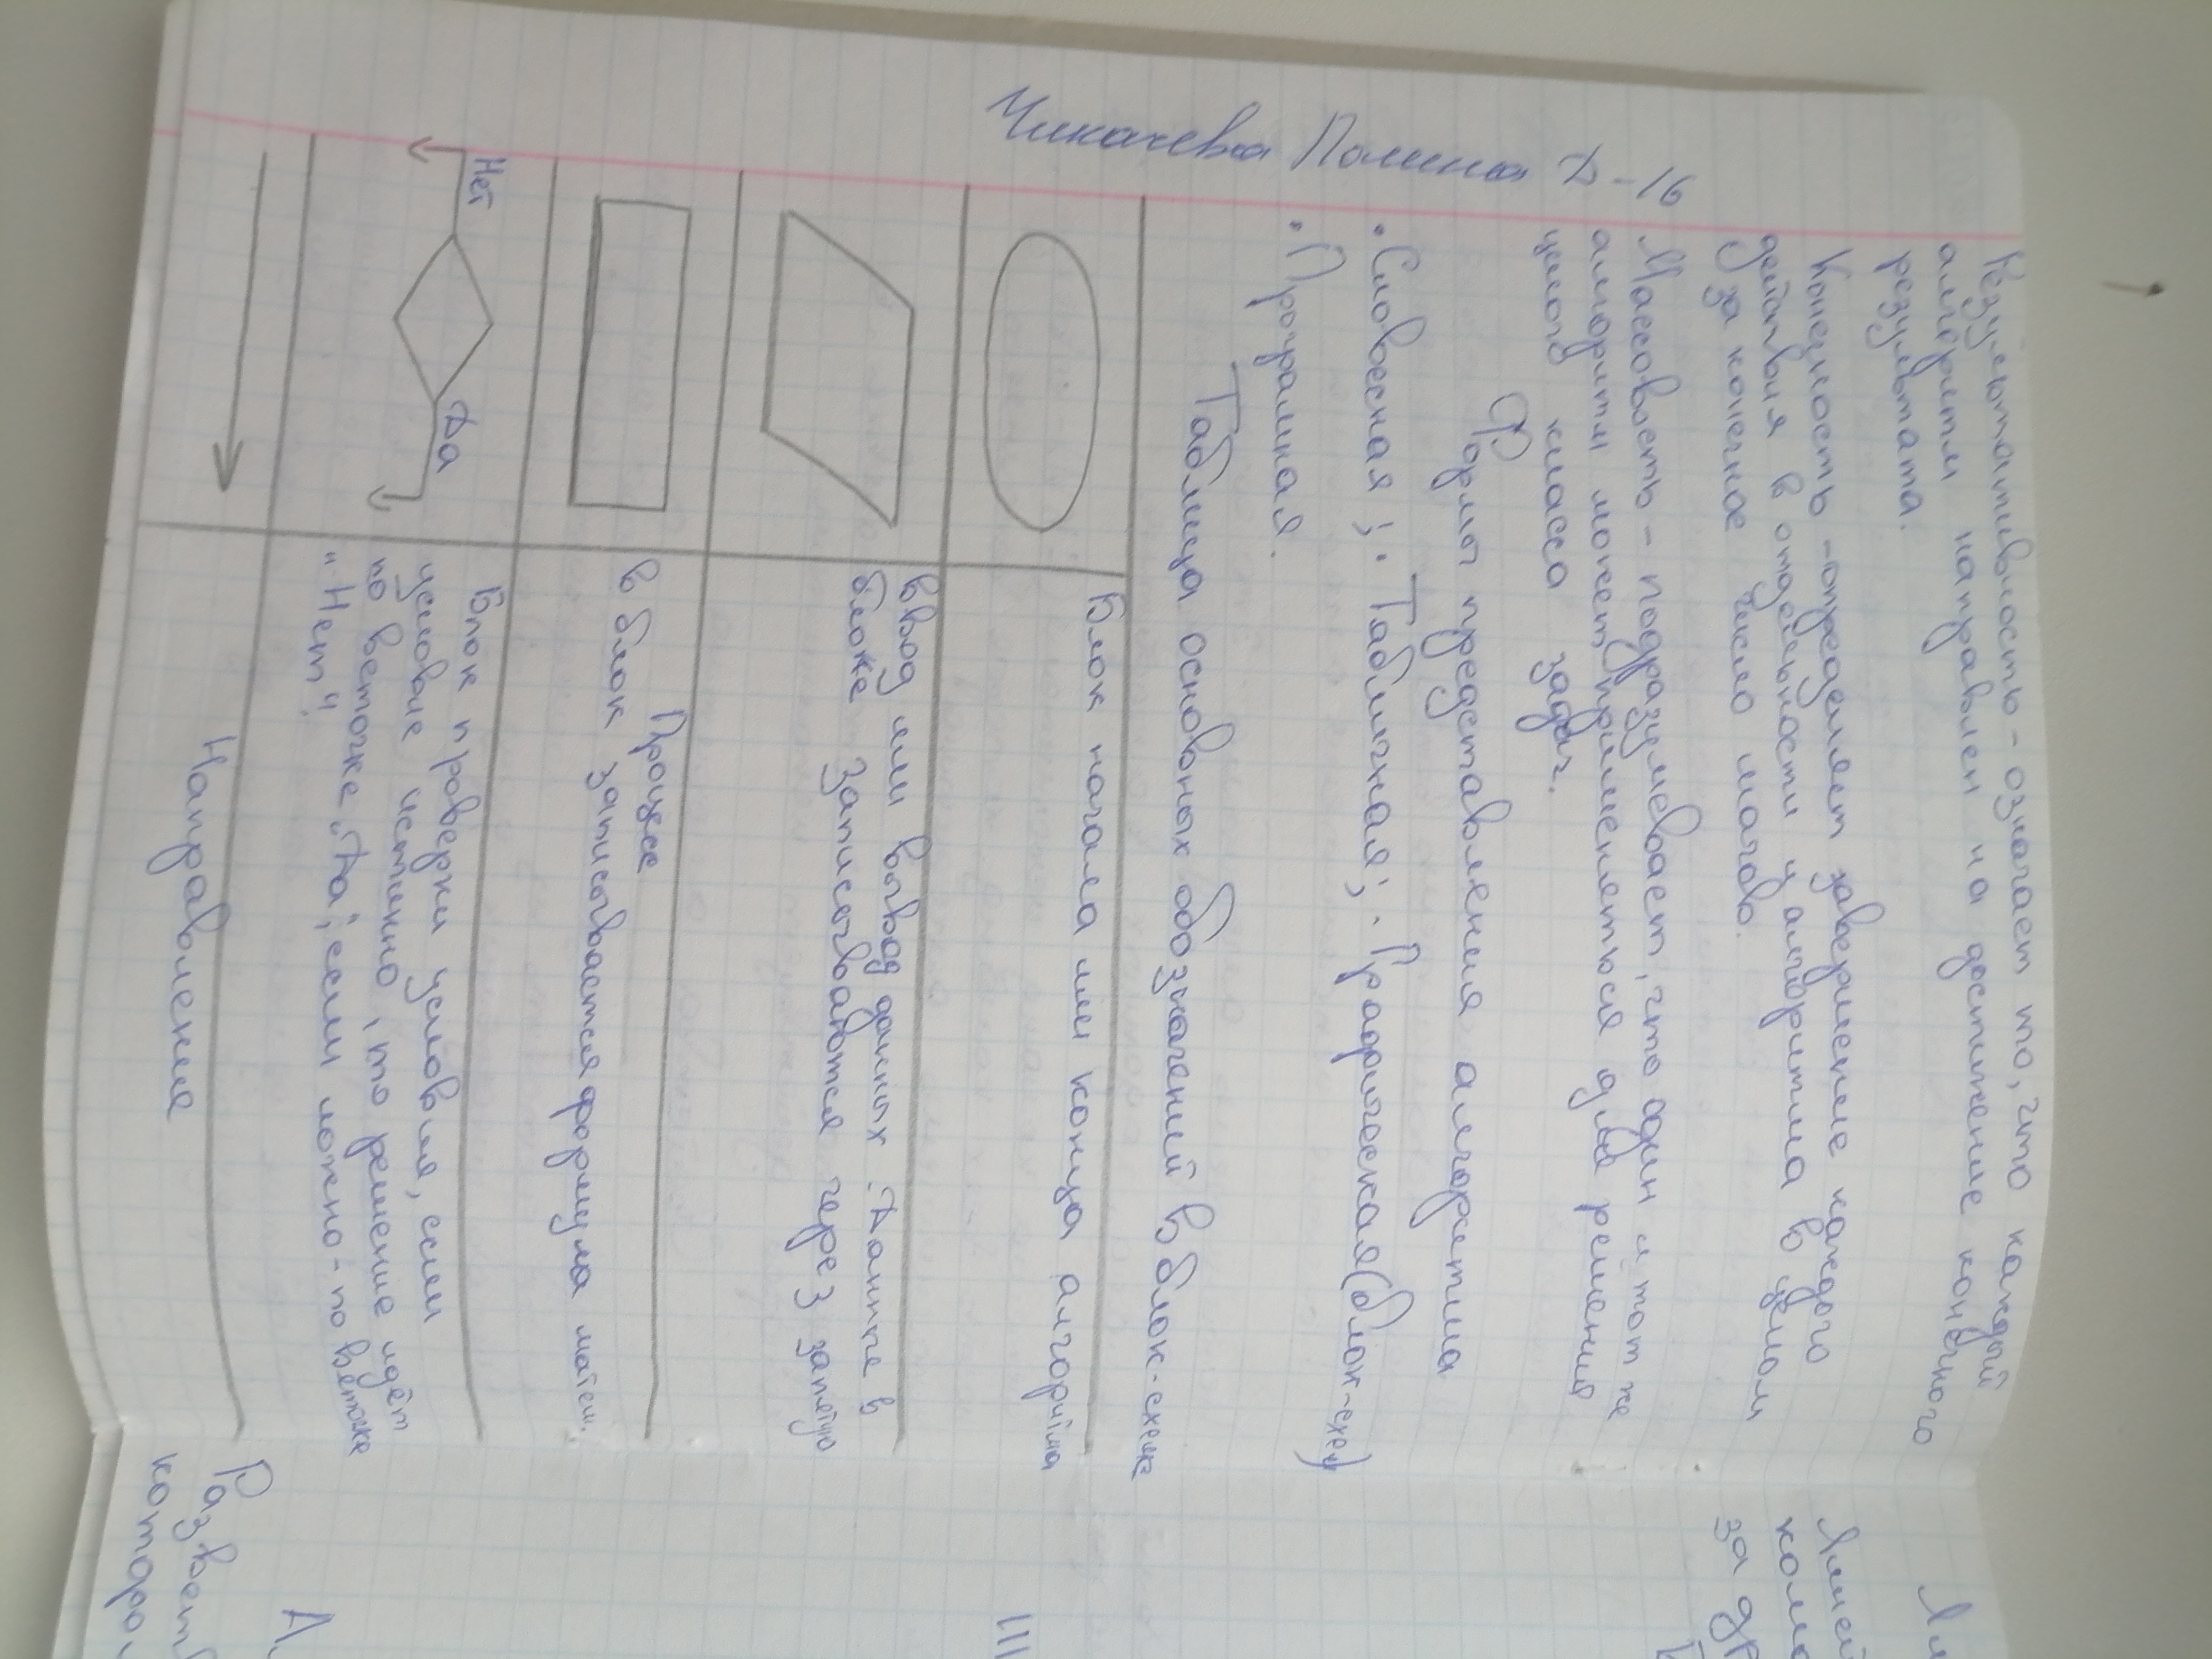 Чикачева Полина Д-16
Результативность - означает то, что каждый
алгоритм направлен на достижение конечного
результата.
Конечность - определяет завершение каждого
действия в отдельности и алгоритма в целом
за конечное число шагов.
Массовость - подразумевает, что один и тот же
алгоритм может применяться для решения
целого класса задач.
Формы представления алгоритма
• Словесная; • Табличная; • Графическая (блок-схем)
• Програмная.
Таблица основных обозначений в блок-схеме
Блок начала или конца алгоритма
Ввод или вывод данных. Данные в
блоке записываются через запятую
Процесс
в блок записывается формула матем.
Нет
Да
Блок проверки условия, если
условие истинно, то решение идёт
по веточке „Да“, если ложно - по веточке
„Нет“.
Направления
Линей
за др
Развет
которо